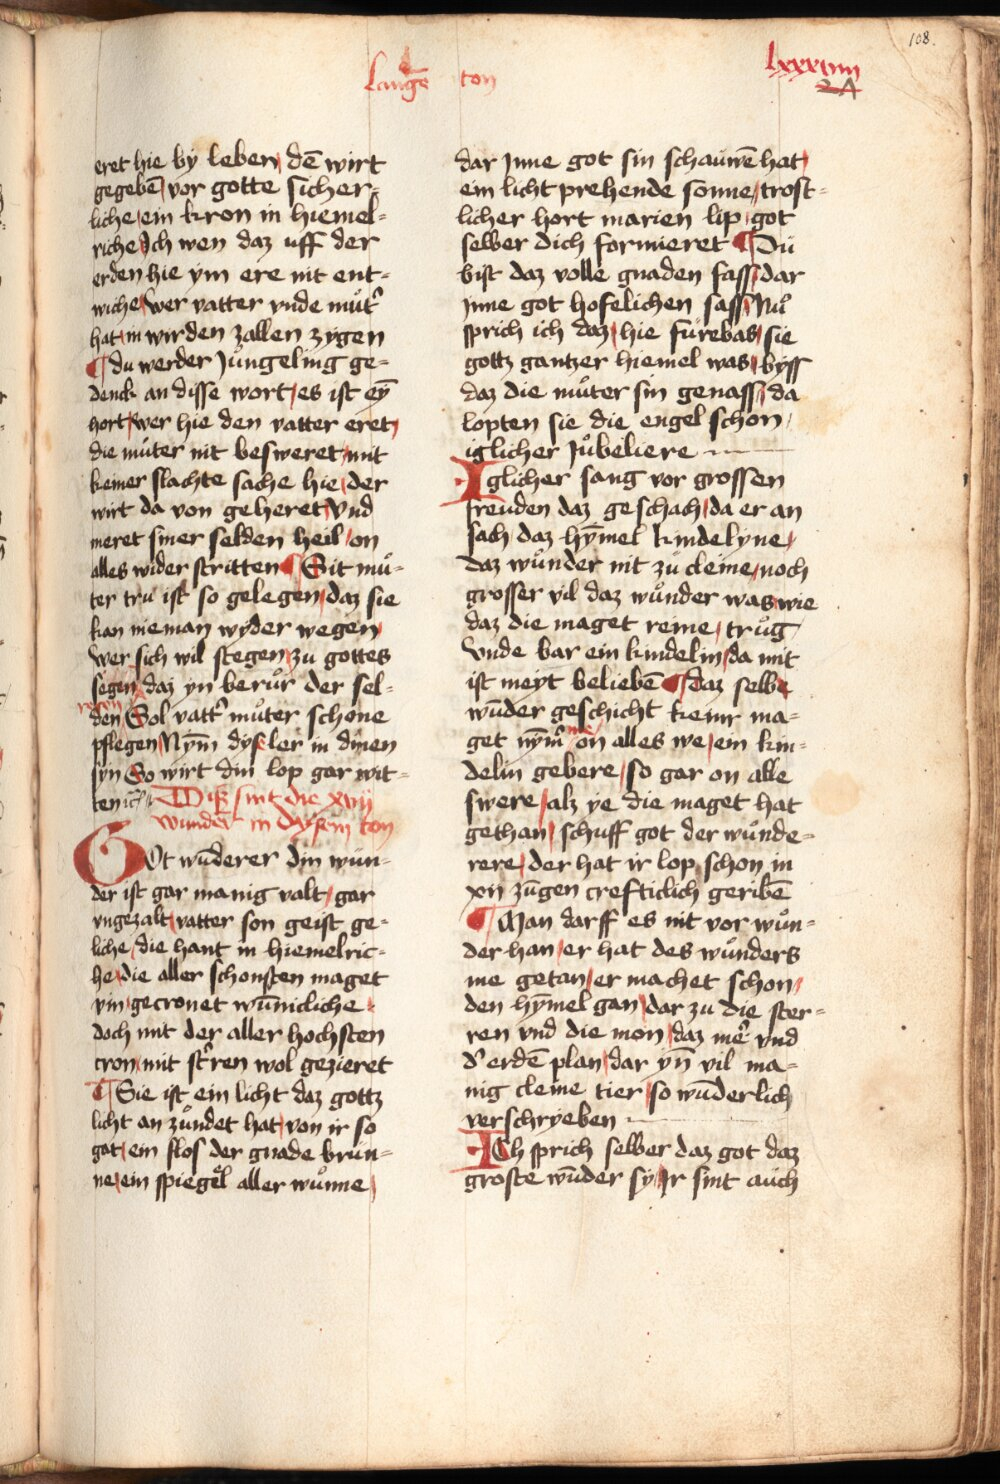 108.
lxxxiiii
Lange ton
eret hie by leben / dē wirt
gegebē / vor gotte sicher=
liche / ein kron in hiemel=
riche Ich wen daz uff der
erden hie ym ere nit ent=
wiche / wer vatter vnde mut͛
hat / in wirden zallen zygen
¶ du werder Jůngeling ge=
denck an disse wort / es ist eȳ
hort / wer hie den vatter eret /
die můter nit besweret / mit
keiner slachte sache hie / der
wirt da von geheret / vnd
meret siner selden heil / on
alles wider stritten ¶ Sit mů=
ter tru ist so gelegen / daz sie
kan nieman wyder wegen /
wer sich wil stegen / zu gottes
segen / daz yn berůr der sel=
den / Sol vatt͛ můter schone
pflegen / Nȳm dyse ler in dinen
syn So wirt din lop gar wit=
ten
Diß sint die xvij
wunder in dysem ton
GOt wūderer din wůn=
der ist gar manig valt / gar
vngezalt / vatter son geist ge=
liche / die hant in hiemelric=
he / die aller schonsten maget
vin / gecronet wūnicliche /
doch mit der aller hochsten
cron / mit st͛ren wol gezieret
¶ Sie ist ein licht daz gottz
licht an zůndet hat / von ir so
gat / ein flos der gnade brůn=
ne / ein spiegel aller wůnne /
dar Jnne got sin schauwē hat /
ein licht prehende sonne / trost=
licher hort marien lip / got
selber dich formieret ¶ Dů
bist daz volle gnaden fass / dar
Jnne got hofelichen sass / Nů
sprich ich daz / hie fůrebas / sie
gottz gantzer hiemel was / byss
daz die můter sin genass / da
lopten sie die engel schon /
iglicher Jůbeliere
Iglicher sang vor grossen
freuden daz geschach / da er an
sach / daz hȳmel kindelyne /
daz wůnder nit zů cleine / noch
grosser vil daz wůnder was / wie
daz die maget reine / trůg
vnde bar ein kindelin / da mit
ist meyt beliebē ¶ daz selbe
wūder geschicht keinr ma=
get nȳm͛ me on alles we / ein kin=
delin gebere / so gar on alle
swere / alz ye die maget hat
gethan / schuff got der wůnde=
rere / der hat ir lop schon in
xvij zūgen crefticlich geribē
¶ Man darff es nit vor wůn=
der han / er hat des wůnders
me getan / er machet schon /
den hȳmel gan / dar zu die ster=
ren vnd die mon / daz me͛ vnd
d͛ erdē plan / dar yn̄ vil ma=
nig cleine tier / so wūderlich
verschryeben
ICh sprich selber daz got daz
groste wūder sy / Ir sint auch